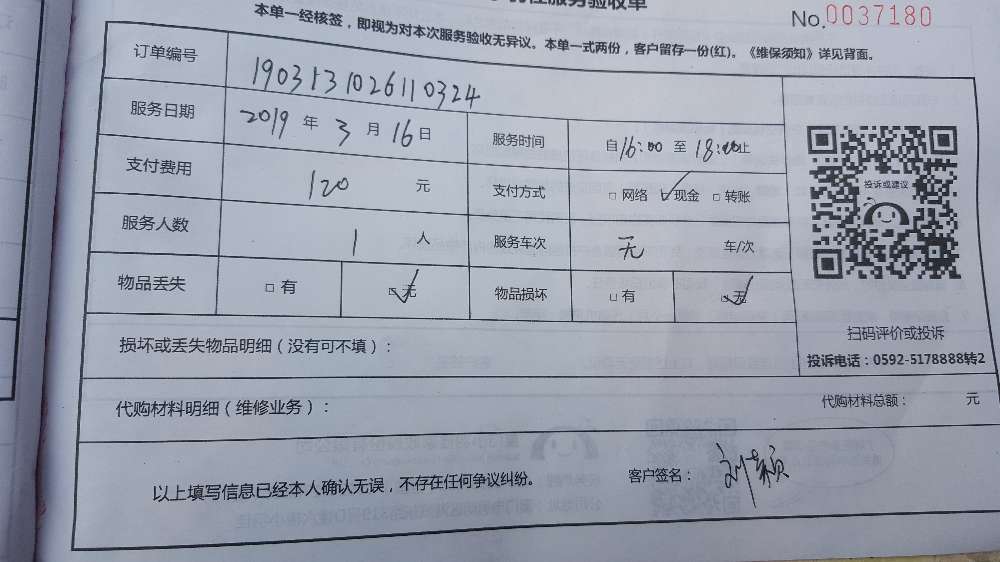 性服务验收单
No.0037180
本单一经核签，即视为对本次服务验收无异议。本单一式两份，客户留存一份(红)。《维保须知》详见背面。
订单编号 1903131026110324
服务日期 2019 年 3 月 16 日 服务时间 自 16:00 至 18:00 止
支付费用 120 元 支付方式 □ 网络 ☑ 现金 □ 转账
服务人数 1 人 服务车次 无 车/次
物品丢失 □ 有 ☑ 无 物品损坏 □ 有 ☑ 无
投诉或建议
扫码评价或投诉
投诉电话：0592-5178888转2
损坏或丢失物品明细（没有可不填）：
代购材料明细（维修业务）： 代购材料总额： 元
以上填写信息已经本人确认无误，不存在任何争议纠纷。 客户签名： 刘颖